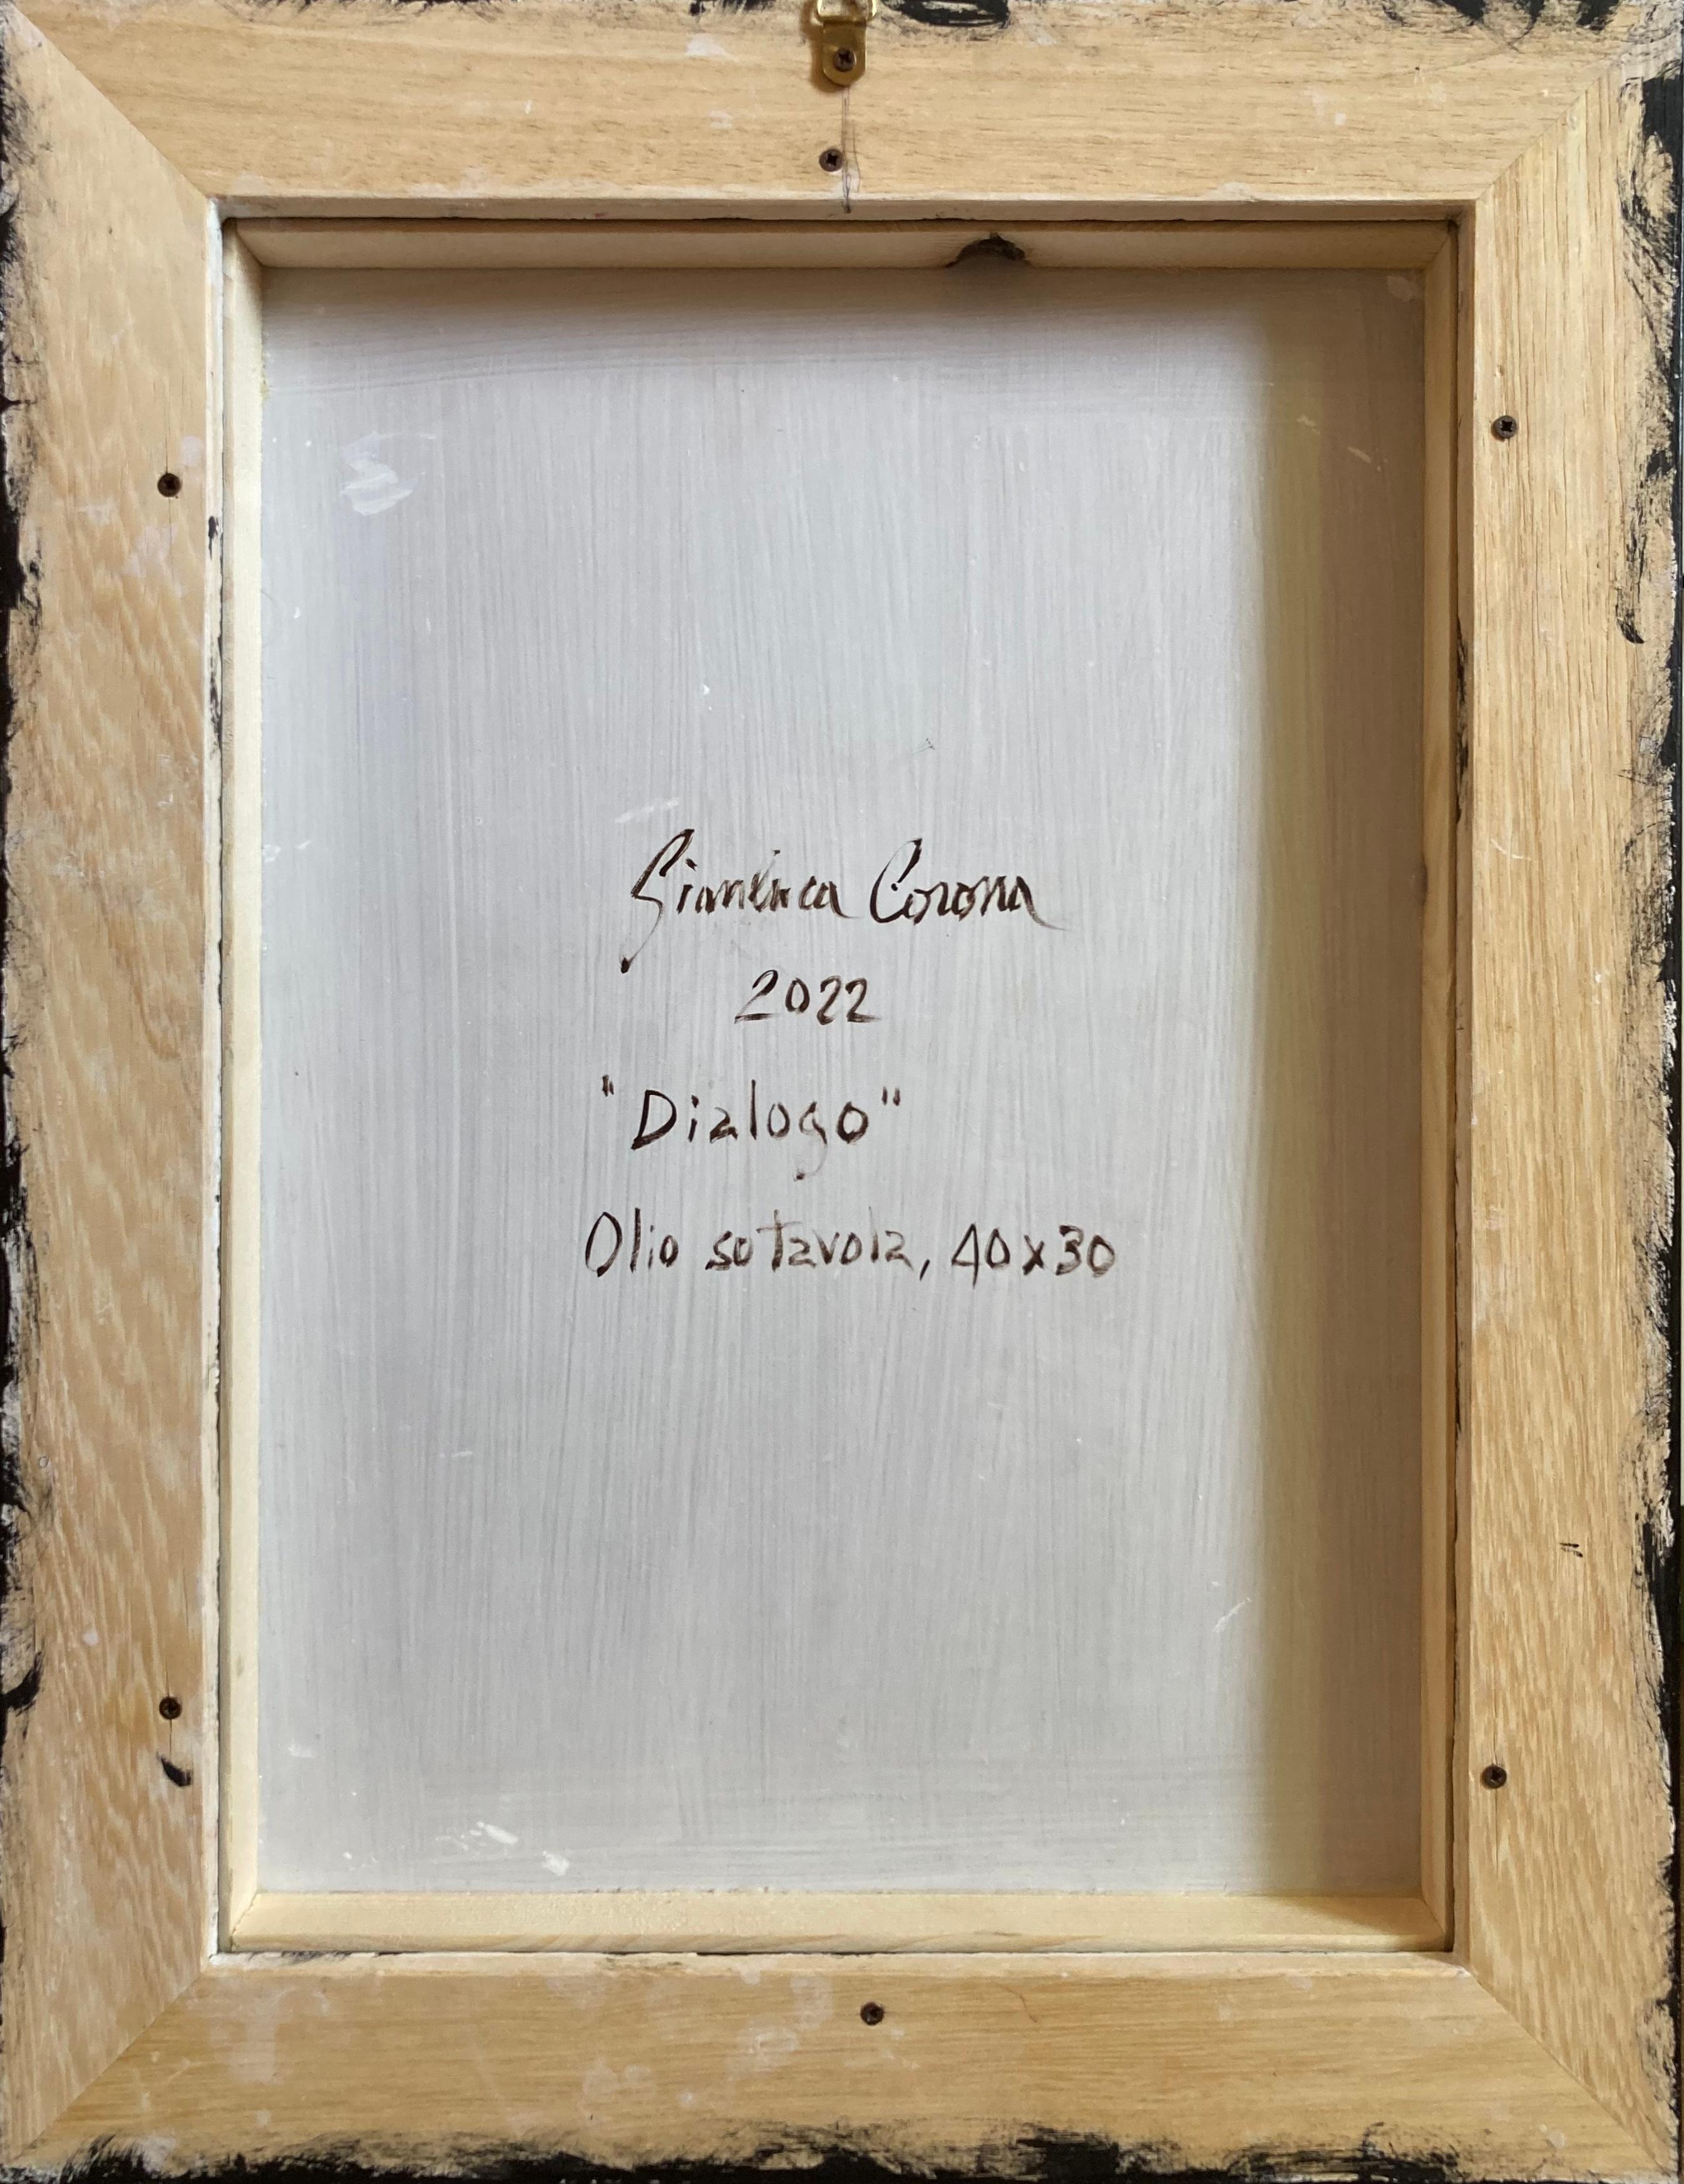 Gianluca Corona
2022
"Dialogo"
Olio su tavola, 40x30